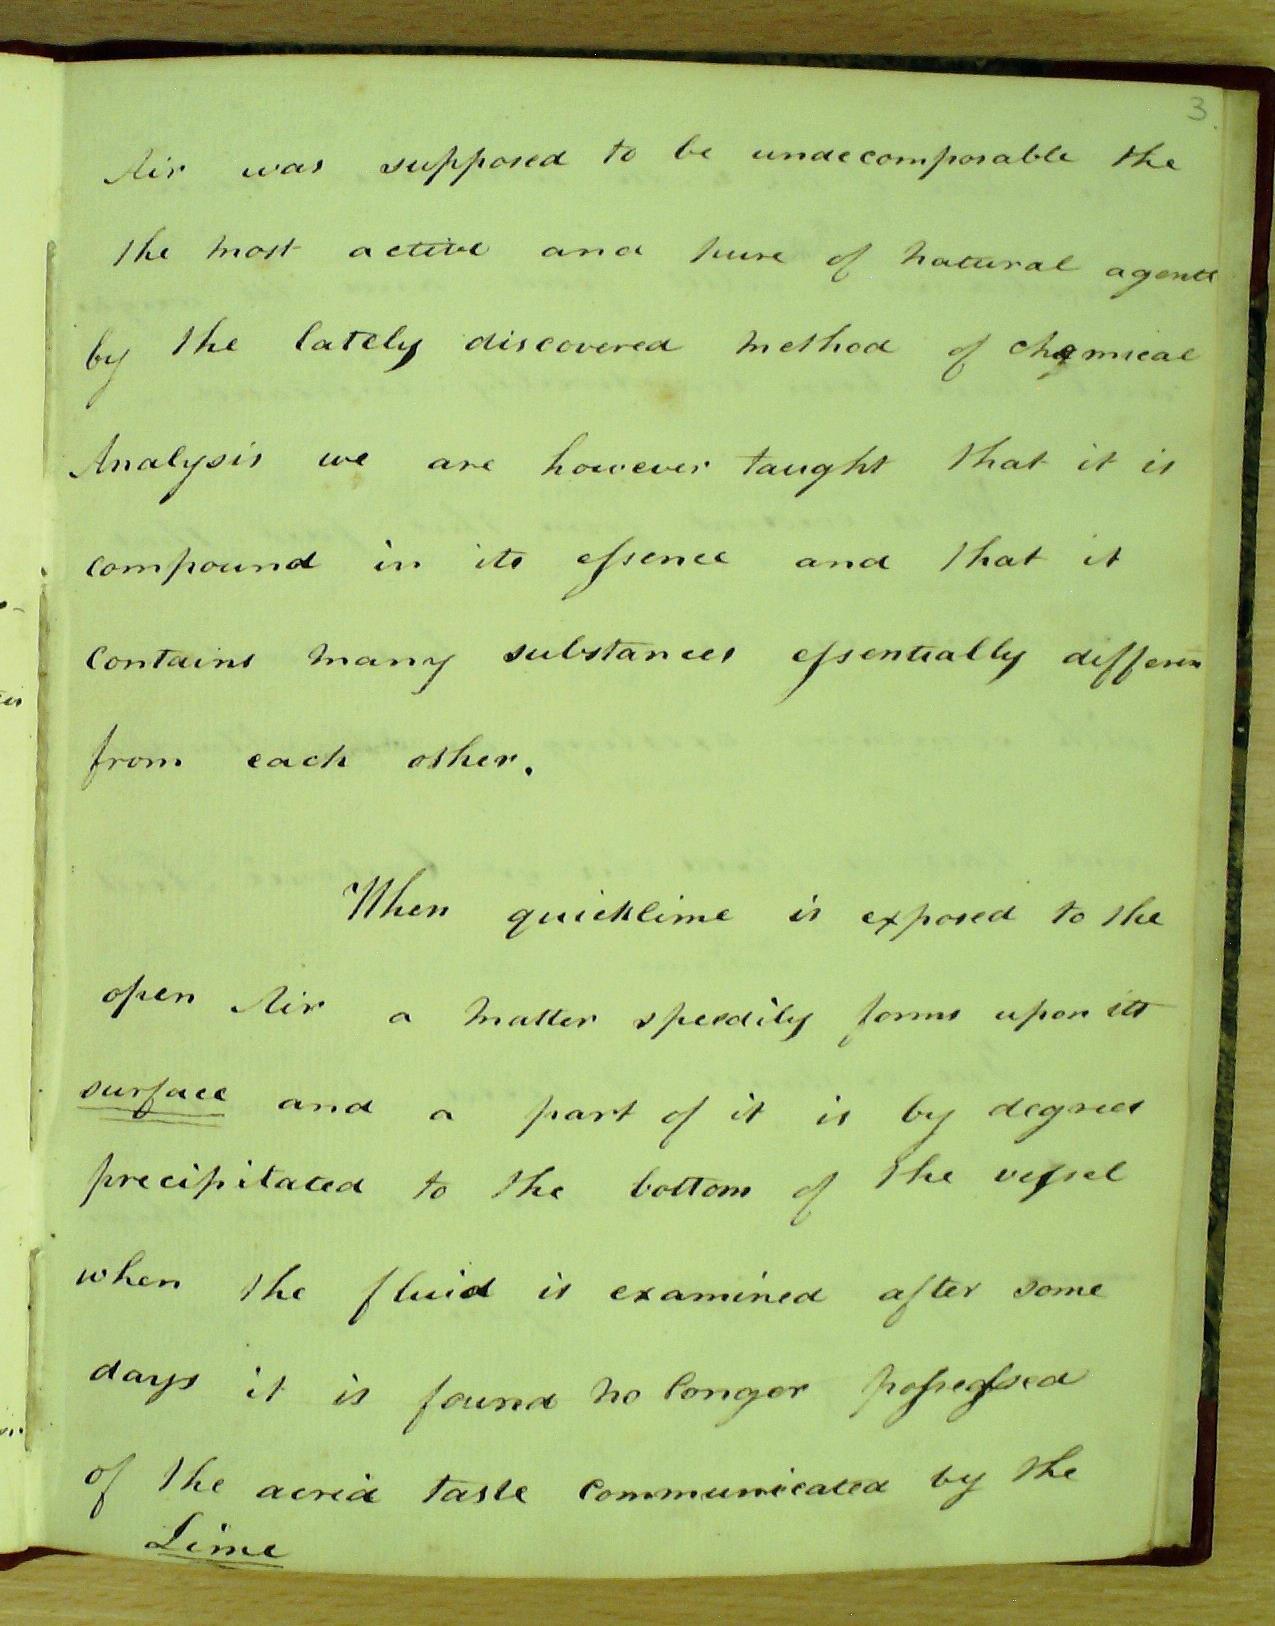 3.
Air was supposed to be undecomposable the
the most active and pure of natural agents
by the lately discovered method of chemical
Analysis we are however taught that it is
compound in its essence and that it
contains many substances essentially differen
from each other.
When quicklime is exposed to the
open Air a matter speedily forms upon its
surface and a part of it is by degrees
precipitated to the bottom of the vessel
when the fluid is examined after some
days it is found no longer possessed
of the acrid taste communicated by the
Lime